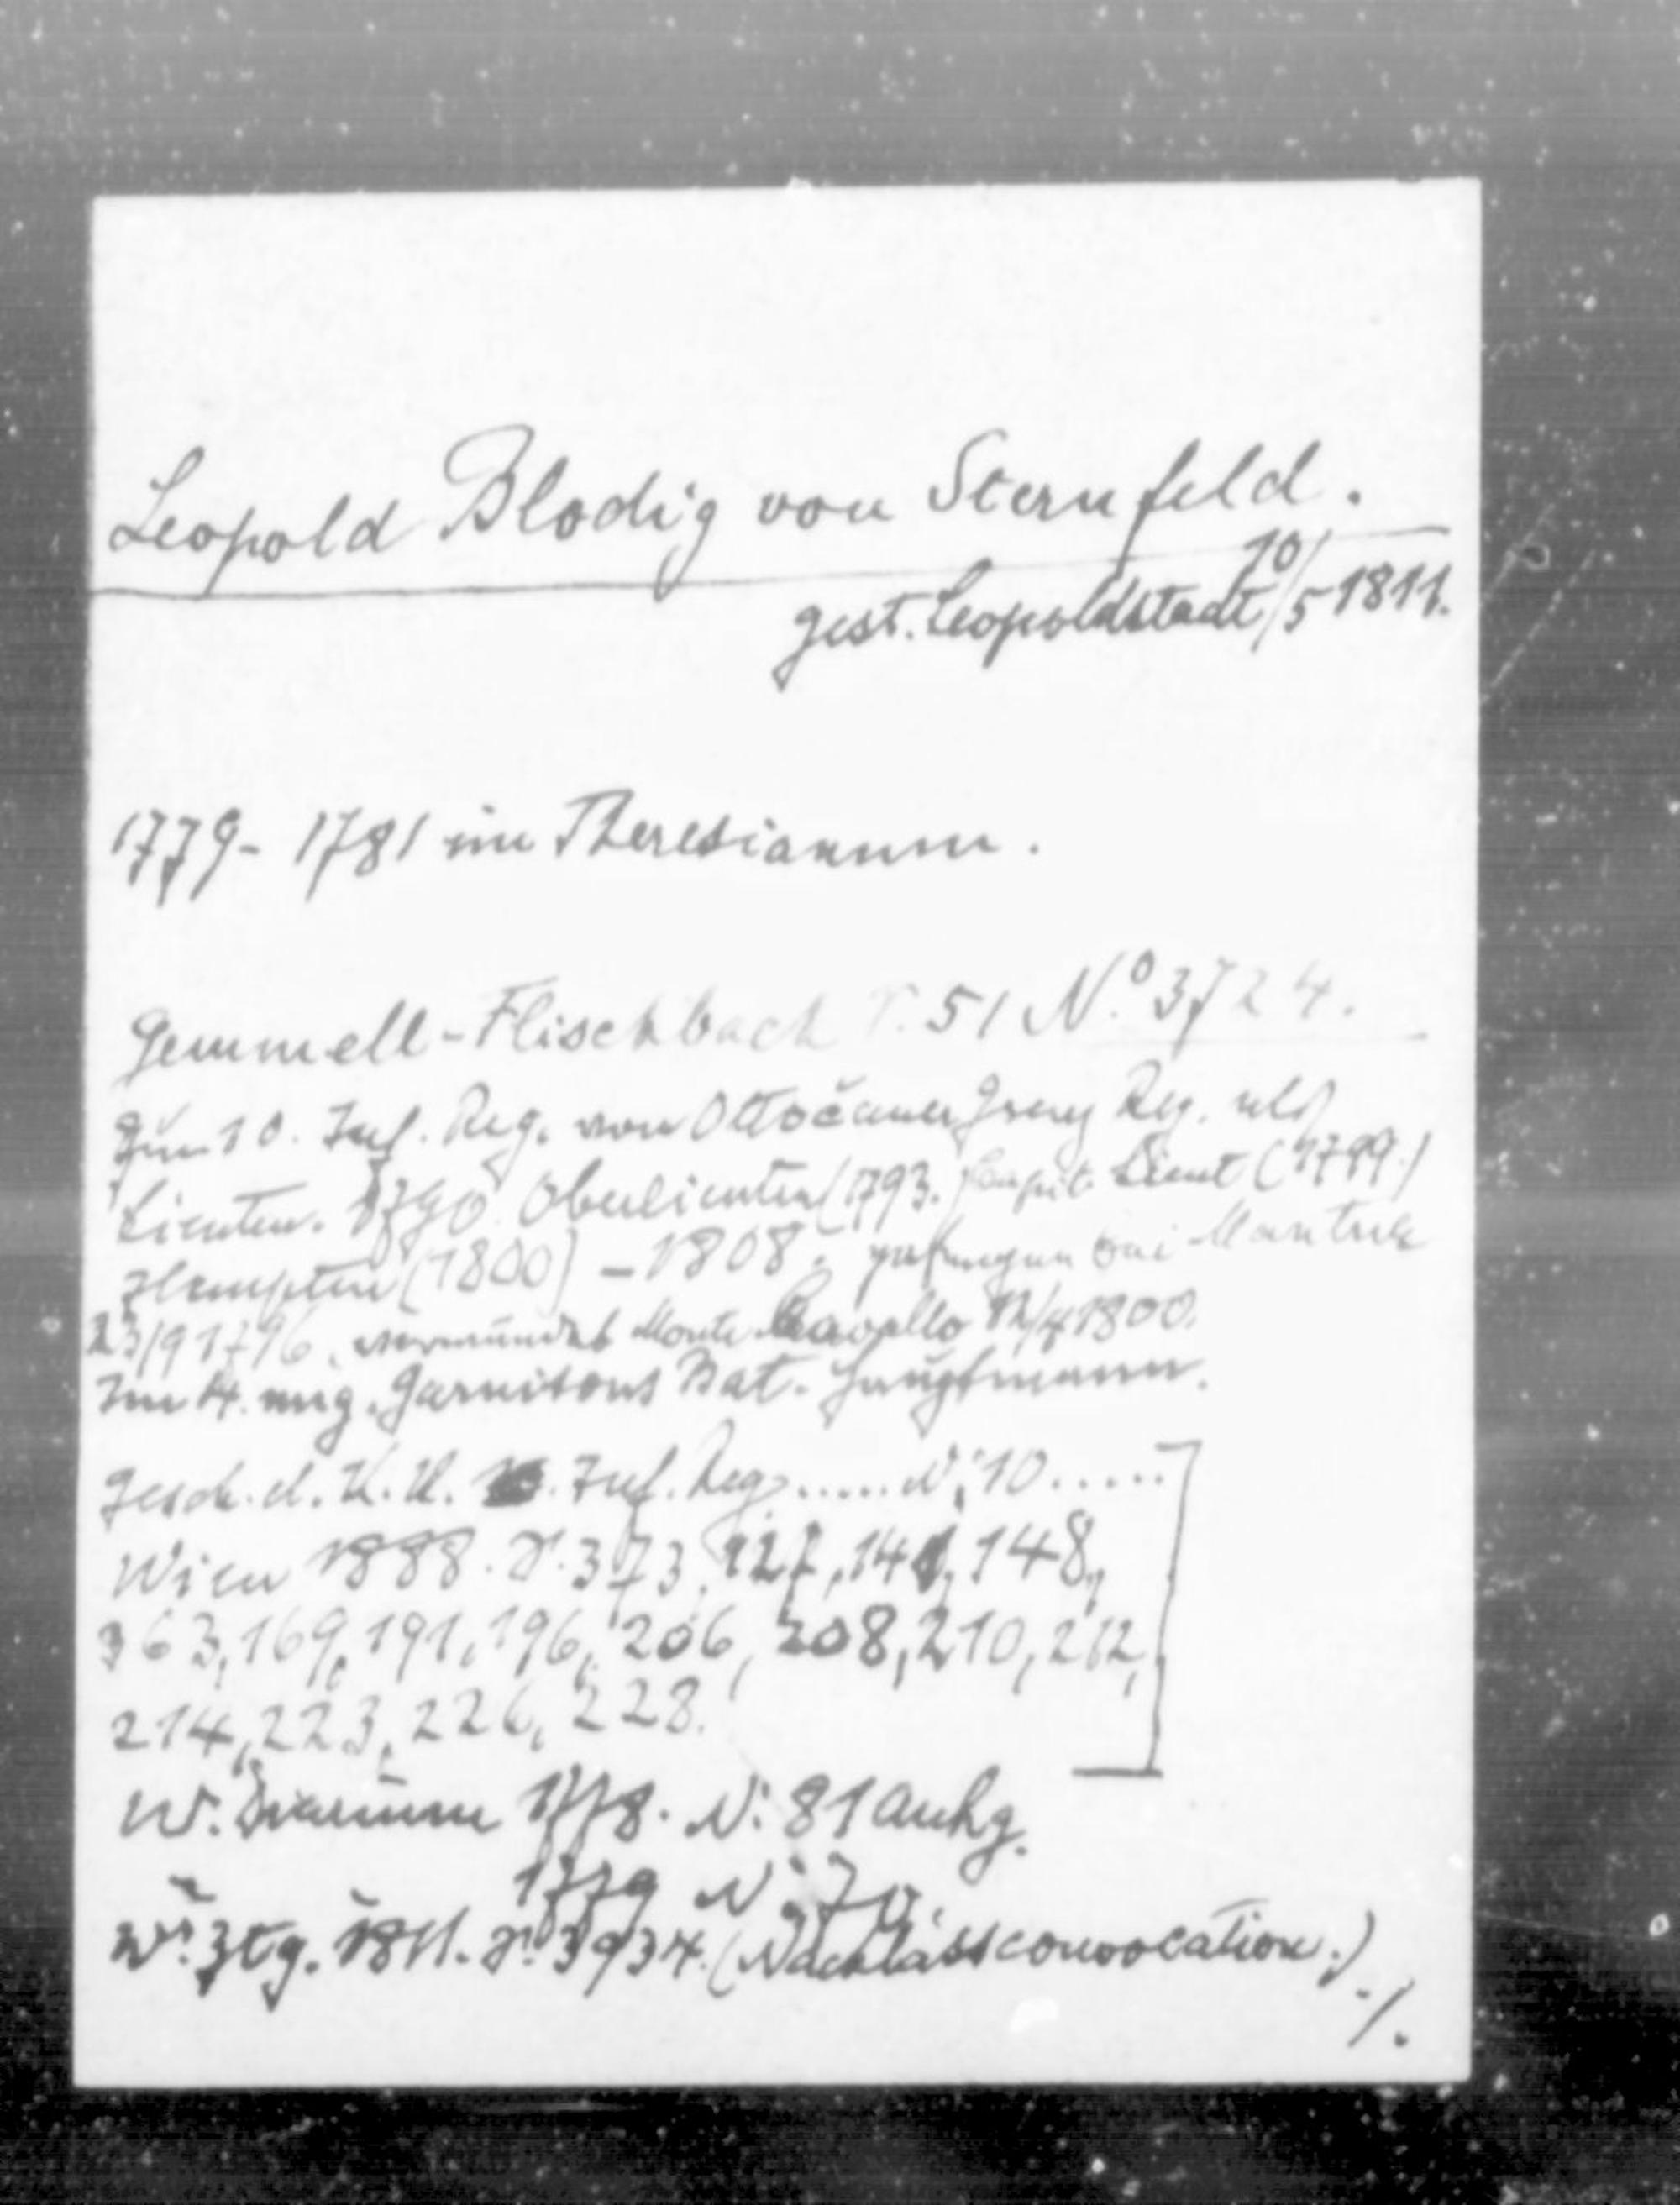 Leopold Blodig von Sternfeld.
gest. Leopoldstadt 10/5 1811.
1779 - 1781 im Theresianum.
Gemmell-Flischbach S. 51 N.o 3724.
Zum 10. Inf. Reg. von Ottočaner Greng Reg. als
Lieuten. 1790 Oberlieuten (1793.) Capit. Lieut (1799.)
Hauptm (1800) - 1808. gefangen bei Mantua
23/9 1796, verwundet Monte Cavallo 12/4 1800.
Im 4. ung. Garnisons Bat. Hauptmann.
Gesch. d. K. K. Inf. Reg ..... N: 10 .....
Wien 1888. S. 373, 127, 141, 148,
363, 169, 191, 196, 206, 208, 210, 212,
214, 223, 226, 228.
W. Diarium 1778. N: 81 Anhg.
1779 N: 70.
Wr. Ztg. 1811. S. 3934. (Nachlassconvocation.)
./.